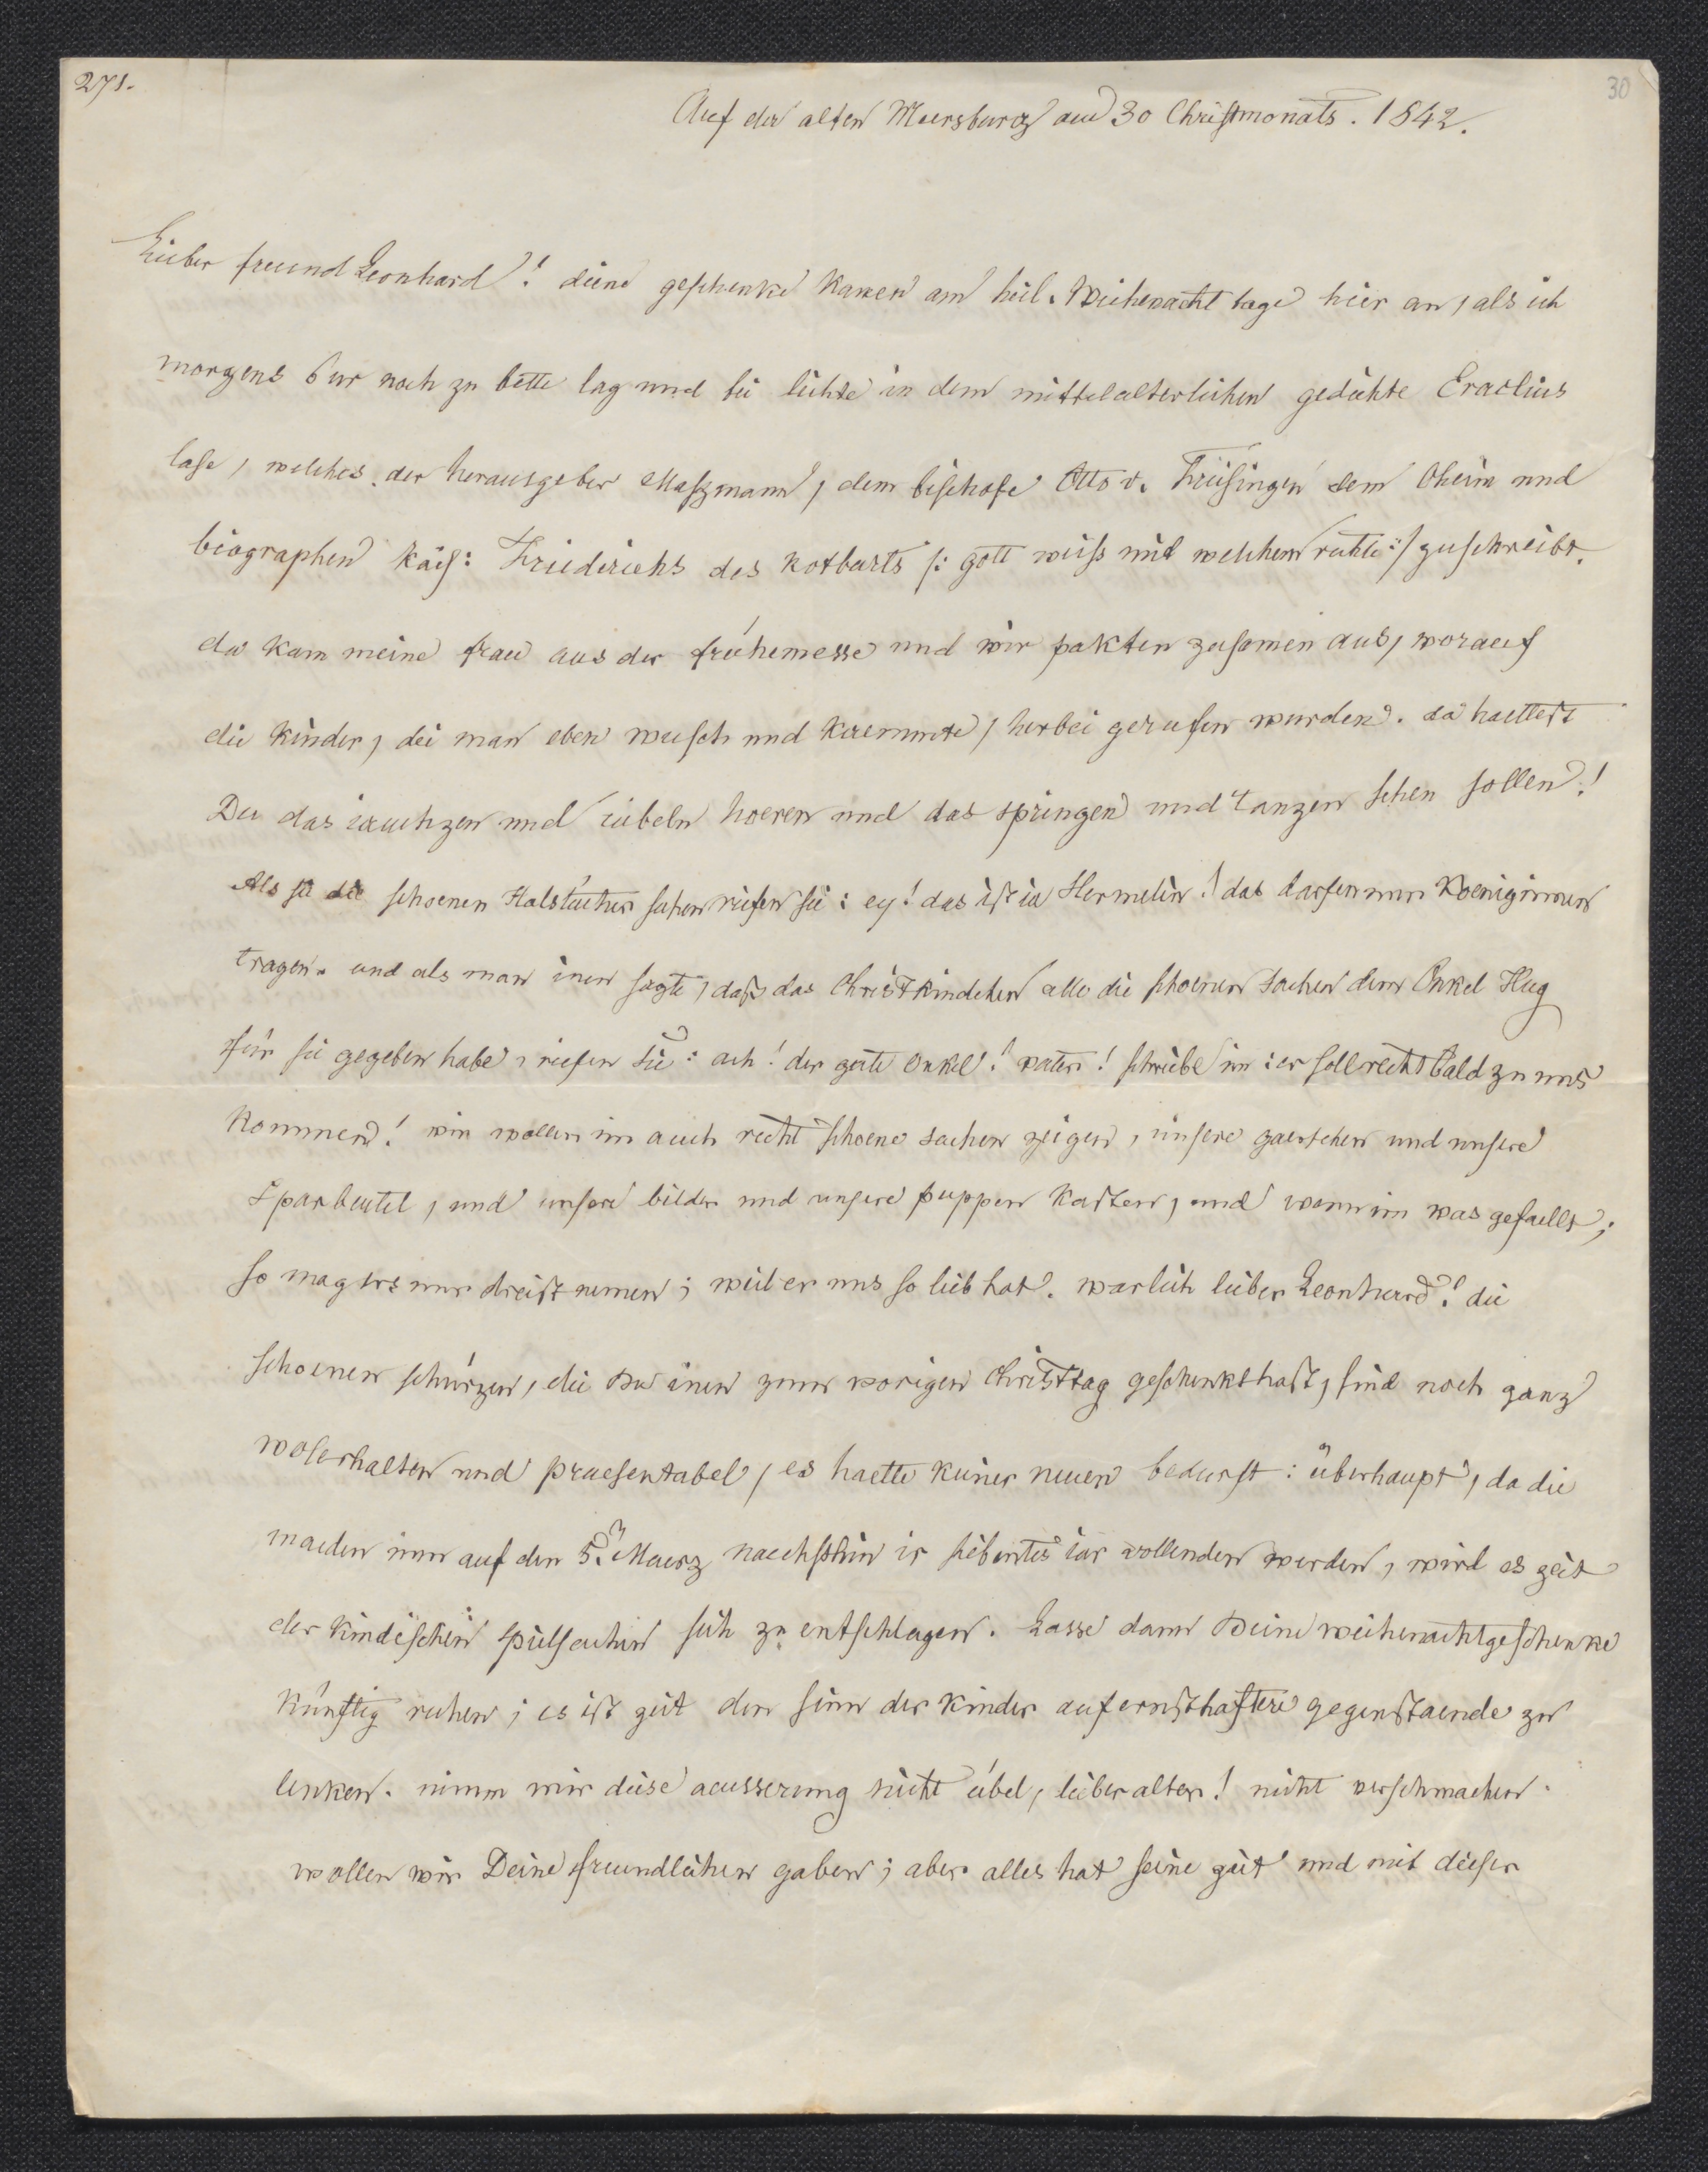 271.
30
Auf der alten Meersburg am 30 Christmonats. 1842.
Lieber freund Leonhard! deine geschenke kamen am heil. Weihenacht tage hier an, als ich
morgens 6 ur noch zu bette lag und bei lichte in dem mittelalterlichen gedichte Eraclius
lase, welches der herausgeber Maßmann, dem bischofe Otto v. Freisingen dem Oheim und
biographen kais: Friederichs des Rotbarts /: gott weiss mit welchem rechte :/ zuschreibt.
da kam meine frau aus der frühemesse und wir pakten zusamen aus, worauf
die kinder, dei man eben wusch und kaemmte, herbei gerufen wurden. da haettest
Du das iauchzen und iubeln hoeren und das springen und tanzen sehen sollen!
Als sie die schoenen Halstücher sahen riefen sie: ey! das ist ia Hermelin! das darfen nur Koeniginnen
tragen. und als man inen sagte, daß das Christkindchen alle die schoenen sachen dem Onkel Hug
für sie gegeben habe, riefen sie: ach! der gute Onkel! vater! schreibe im: er soll recht bald zu uns
kommen! wir wollen im auch recht schoene sachen zeigen, unsere gaertchen und unsere
Sparbeutel, und unsere bilder und unsere puppen kasten, und wenn im was gefaellt,
so mag ers nur dreist nemen; weil er uns so lieb hat. warlich lieber Leonhard! die
schoenen schürzen, die Du inen zum vorigen Christtag geschenkt hast, sind noch ganz
wolerhalten und praesentabel, es haette keiner neuen bedurft: überhaupt, da die
maeden nun auf den 5. Maerz naechsthin ir siebentes iar vollenden werden, wird es zeit
der kindischen spielsachen sich zu entschlagen. Lasse dann Deine weihenachtgeschenke
künftig ruhen; es ist gut den sinn der kinder auf ernsthaftere gegenstaende zu
lenken. nimm mir diese aeusserung nicht übel, lieber alter! nicht verschmaehen
wollen wir Deine freundlichen gaben; aber alles hat seine zeit und mit dieser